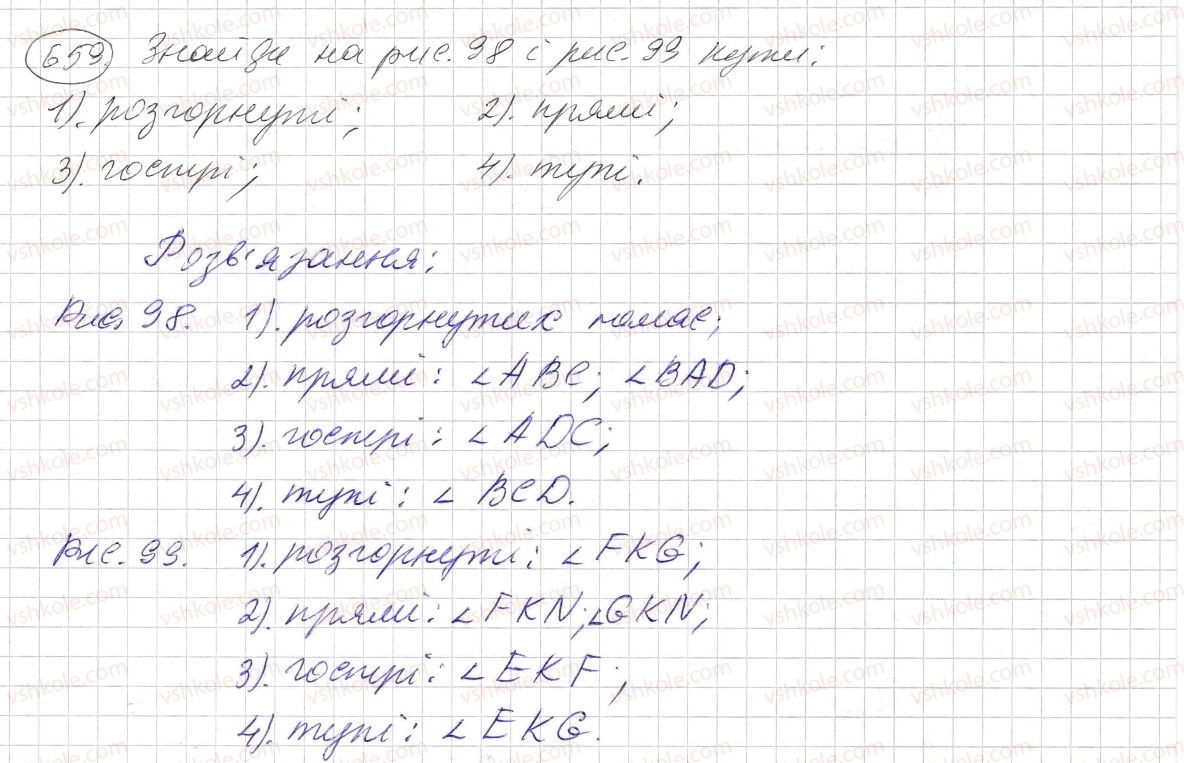 659. Знайди на рис. 98 і рис. 99 кути:
1). розгорнуті; 2). прямі;
3). гострі; 4). тупі.
Розв'язання:
Рис. 98. 1). розгорнутих немає;
2). прямі: ∠ABC; ∠BAD;
3). гострі: ∠ADC;
4). тупі: ∠BCD.
Рис. 99. 1). розгорнуті: ∠FKG;
2). прямі: ∠FKN; ∠GKN;
3). гострі: ∠EKF;
4). тупі: ∠EKG.